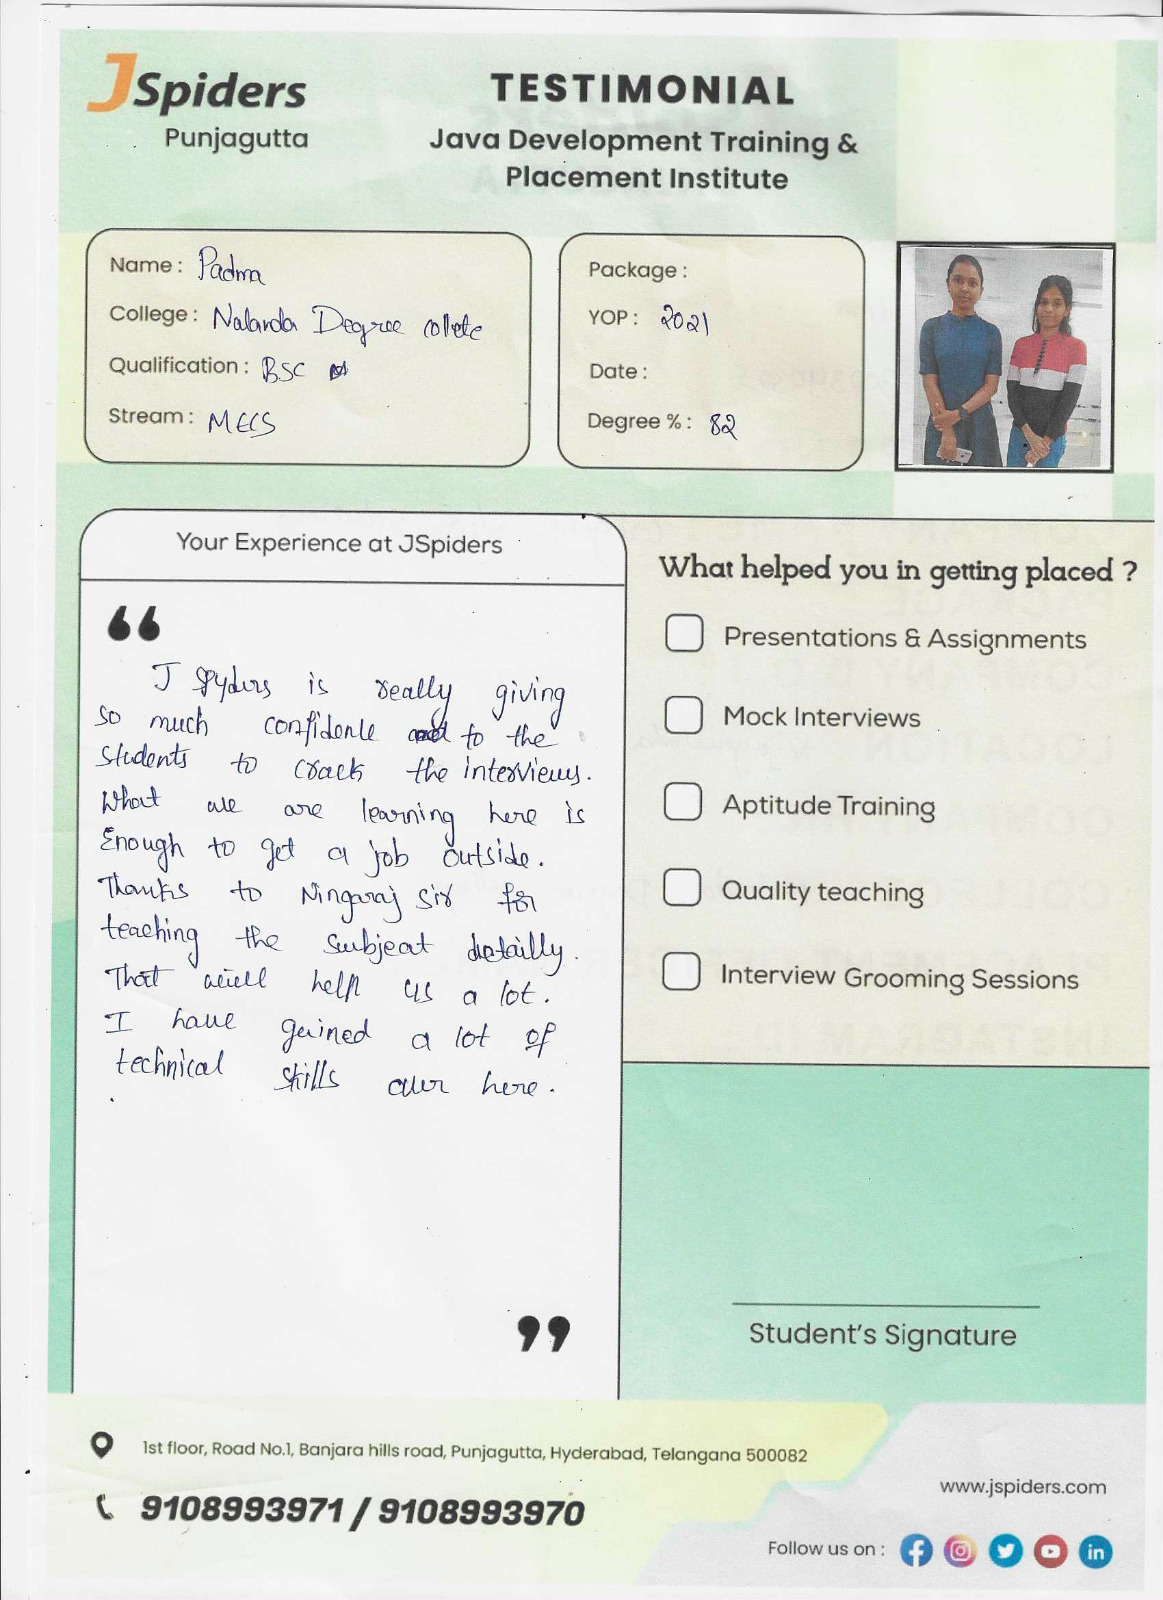 JSpiders
Punjagutta
TESTIMONIAL
Java Development Training &
Placement Institute
Name : Padma
College : Nalanda Degree collete
Qualification : BSC
Stream : MECS
Package :
YOP : 2021
Date :
Degree % : 82
Your Experience at JSpiders
“
J Spyders is really giving
so much confidence to the
students to crack the interviews.
What we are learning here is
Enough to get a job outside.
Thanks to Ningaraj sir for
teaching the subject detailly.
That will help us a lot.
I have gained a lot of
technical skills over here.
”
What helped you in getting placed ?
Presentations & Assignments
Mock Interviews
Aptitude Training
Quality teaching
Interview Grooming Sessions
Student's Signature
1st floor, Road No.1, Banjara hills road, Punjagutta, Hyderabad, Telangana 500082
9108993971 / 9108993970
www.jspiders.com
Follow us on :